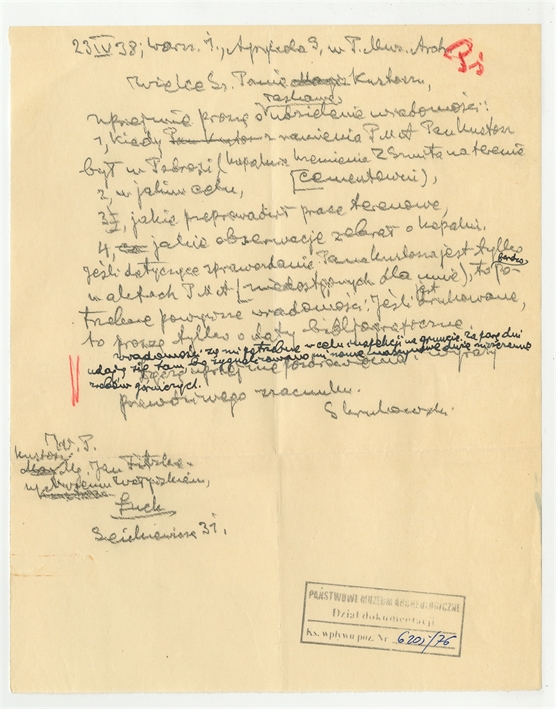 23 IV 38, Warsz. 1, Agrykola 9, w P. Muz. Arch.
Wielce Sz. Panie Kustosz,
uprzejmie proszę o udzielenie wiadomości:
1, kiedy z ramienia PMA Pan Kustosz
był w (kopalnia krzemienia z Smuta na terenie
[cementowni),
2, w jakim celu,
3, jakie przeprowadził prace terenowe,
4, jakie obserwacje zebrał o kopalni.
Jeśli dotyczące sprawozdanie Pana Kustosza jest tylko
w aktach PMA (niedostępnych dla mnie), to bardzo
trzebne powyższe wiadomości. Jeśli jest drukowane,
to proszę tylko o daty bibliograficzne.
wiadomości są mi potrzebne w celu inspekcji na gruncie. Za parę dni
udaję się tam, bo zygnalizowano mi nowe
robów górniczych.
wyrazy
prawdziwego szacunku.
S Krukowski.
JW. P.
Kustosz
Mg. Jan Fitzke
w Muzeum Wołyńskiem,
Łuck
Sienkiewicza 31,
PAŃSTWOWE MUZEUM ARCHEOLOGICZNE
Dział dokumentacji
Ks. wpływu poz. Nr 620j/76